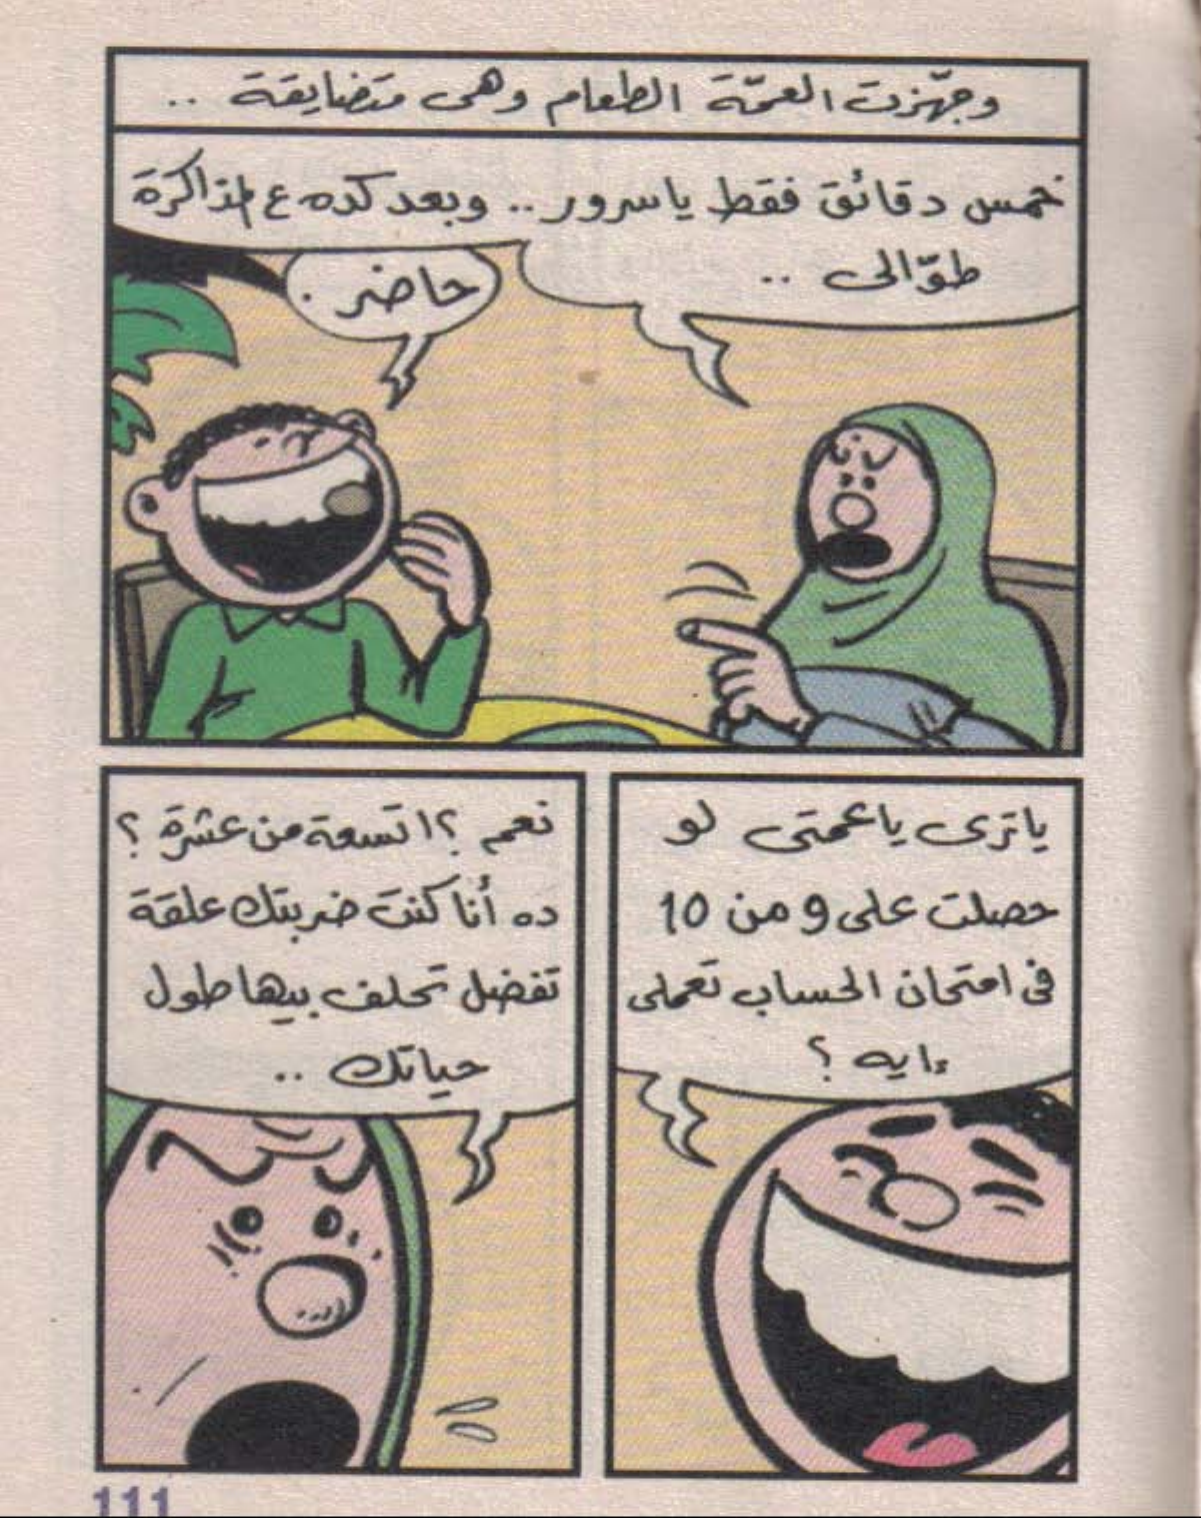 وجهّزت العمّة الطعام وهى متضايقة ..
خمس دقائق فقط ياسرور .. وبعد كده ع المذاكرة
طوّالى ..
حاضر .
ياترى ياعمتى لو
حصلت على 9 من 10
فى امتحان الحساب تعملى
إيه ؟
نعم ؟! تسعة من عشرة ؟
ده أنا كنت ضربتك علقة
تفضل تحلف بيها طول
حياتك ..
111